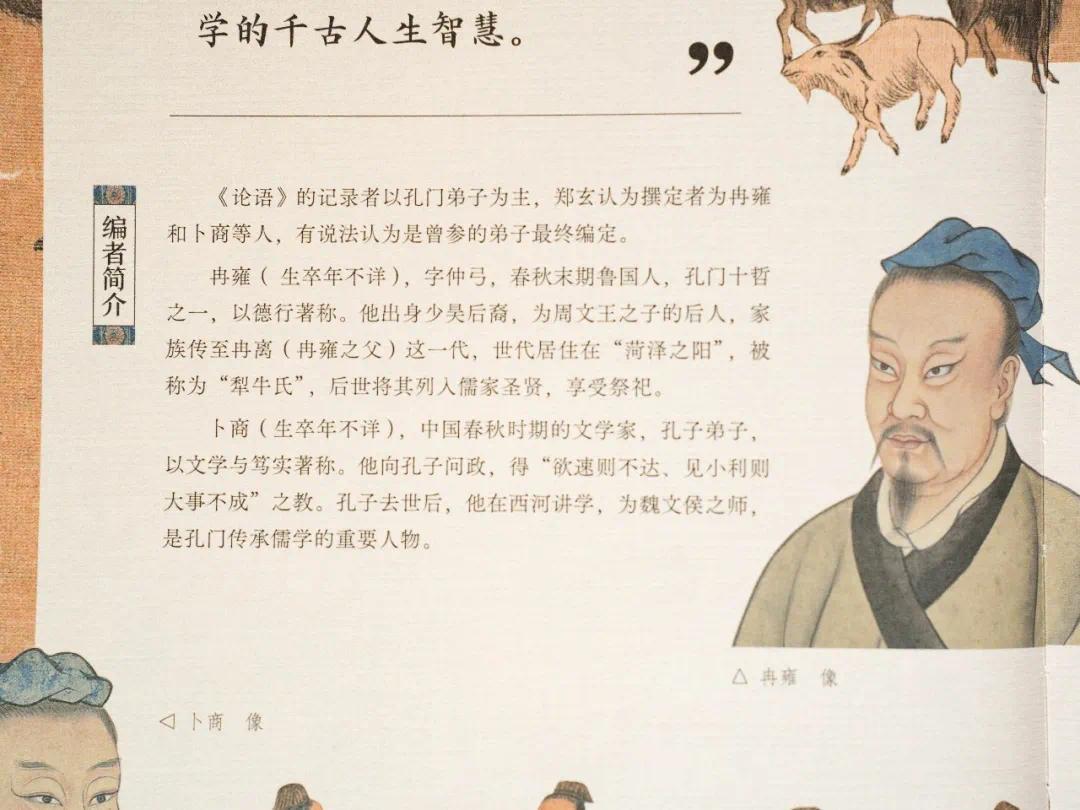 学的千古人生智慧。
”
编者简介
《论语》的记录者以孔门弟子为主，郑玄认为撰定者为冉雍
和卜商等人，有说法认为是曾参的弟子最终编定。
冉雍（生卒年不详），字仲弓，春秋末期鲁国人，孔门十哲
之一，以德行著称。他出身少昊后裔，为周文王之子的后人，家
族传至冉离（冉雍之父）这一代，世代居住在“菏泽之阳”，被
称为“犁牛氏”，后世将其列入儒家圣贤，享受祭祀。
卜商（生卒年不详），中国春秋时期的文学家，孔子弟子，
以文学与笃实著称。他向孔子问政，得“欲速则不达、见小利则
大事不成”之教。孔子去世后，他在西河讲学，为魏文侯之师，
是孔门传承儒学的重要人物。
△ 冉雍 像
◁ 卜商 像